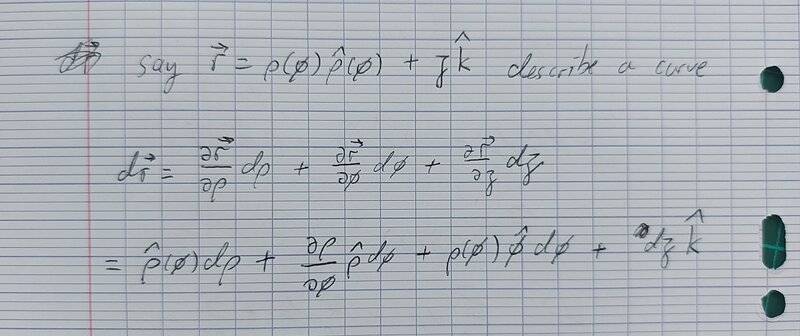 say r⃗ = ρ(ϕ) ρ̂(ϕ) + z k̂ describe a curve
dr⃗ = ∂r⃗/∂ρ dρ + ∂r⃗/∂ϕ dϕ + ∂r⃗/∂z dz
= ρ̂(ϕ) dρ + ∂ρ/∂ϕ ρ̂ dϕ + ρ(ϕ) ϕ̂ dϕ + dz k̂